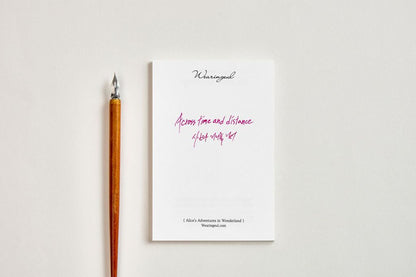 Wearingeul
Across time and distance
[ Alice's Adventures in Wonderland ]
Wearingeul.com